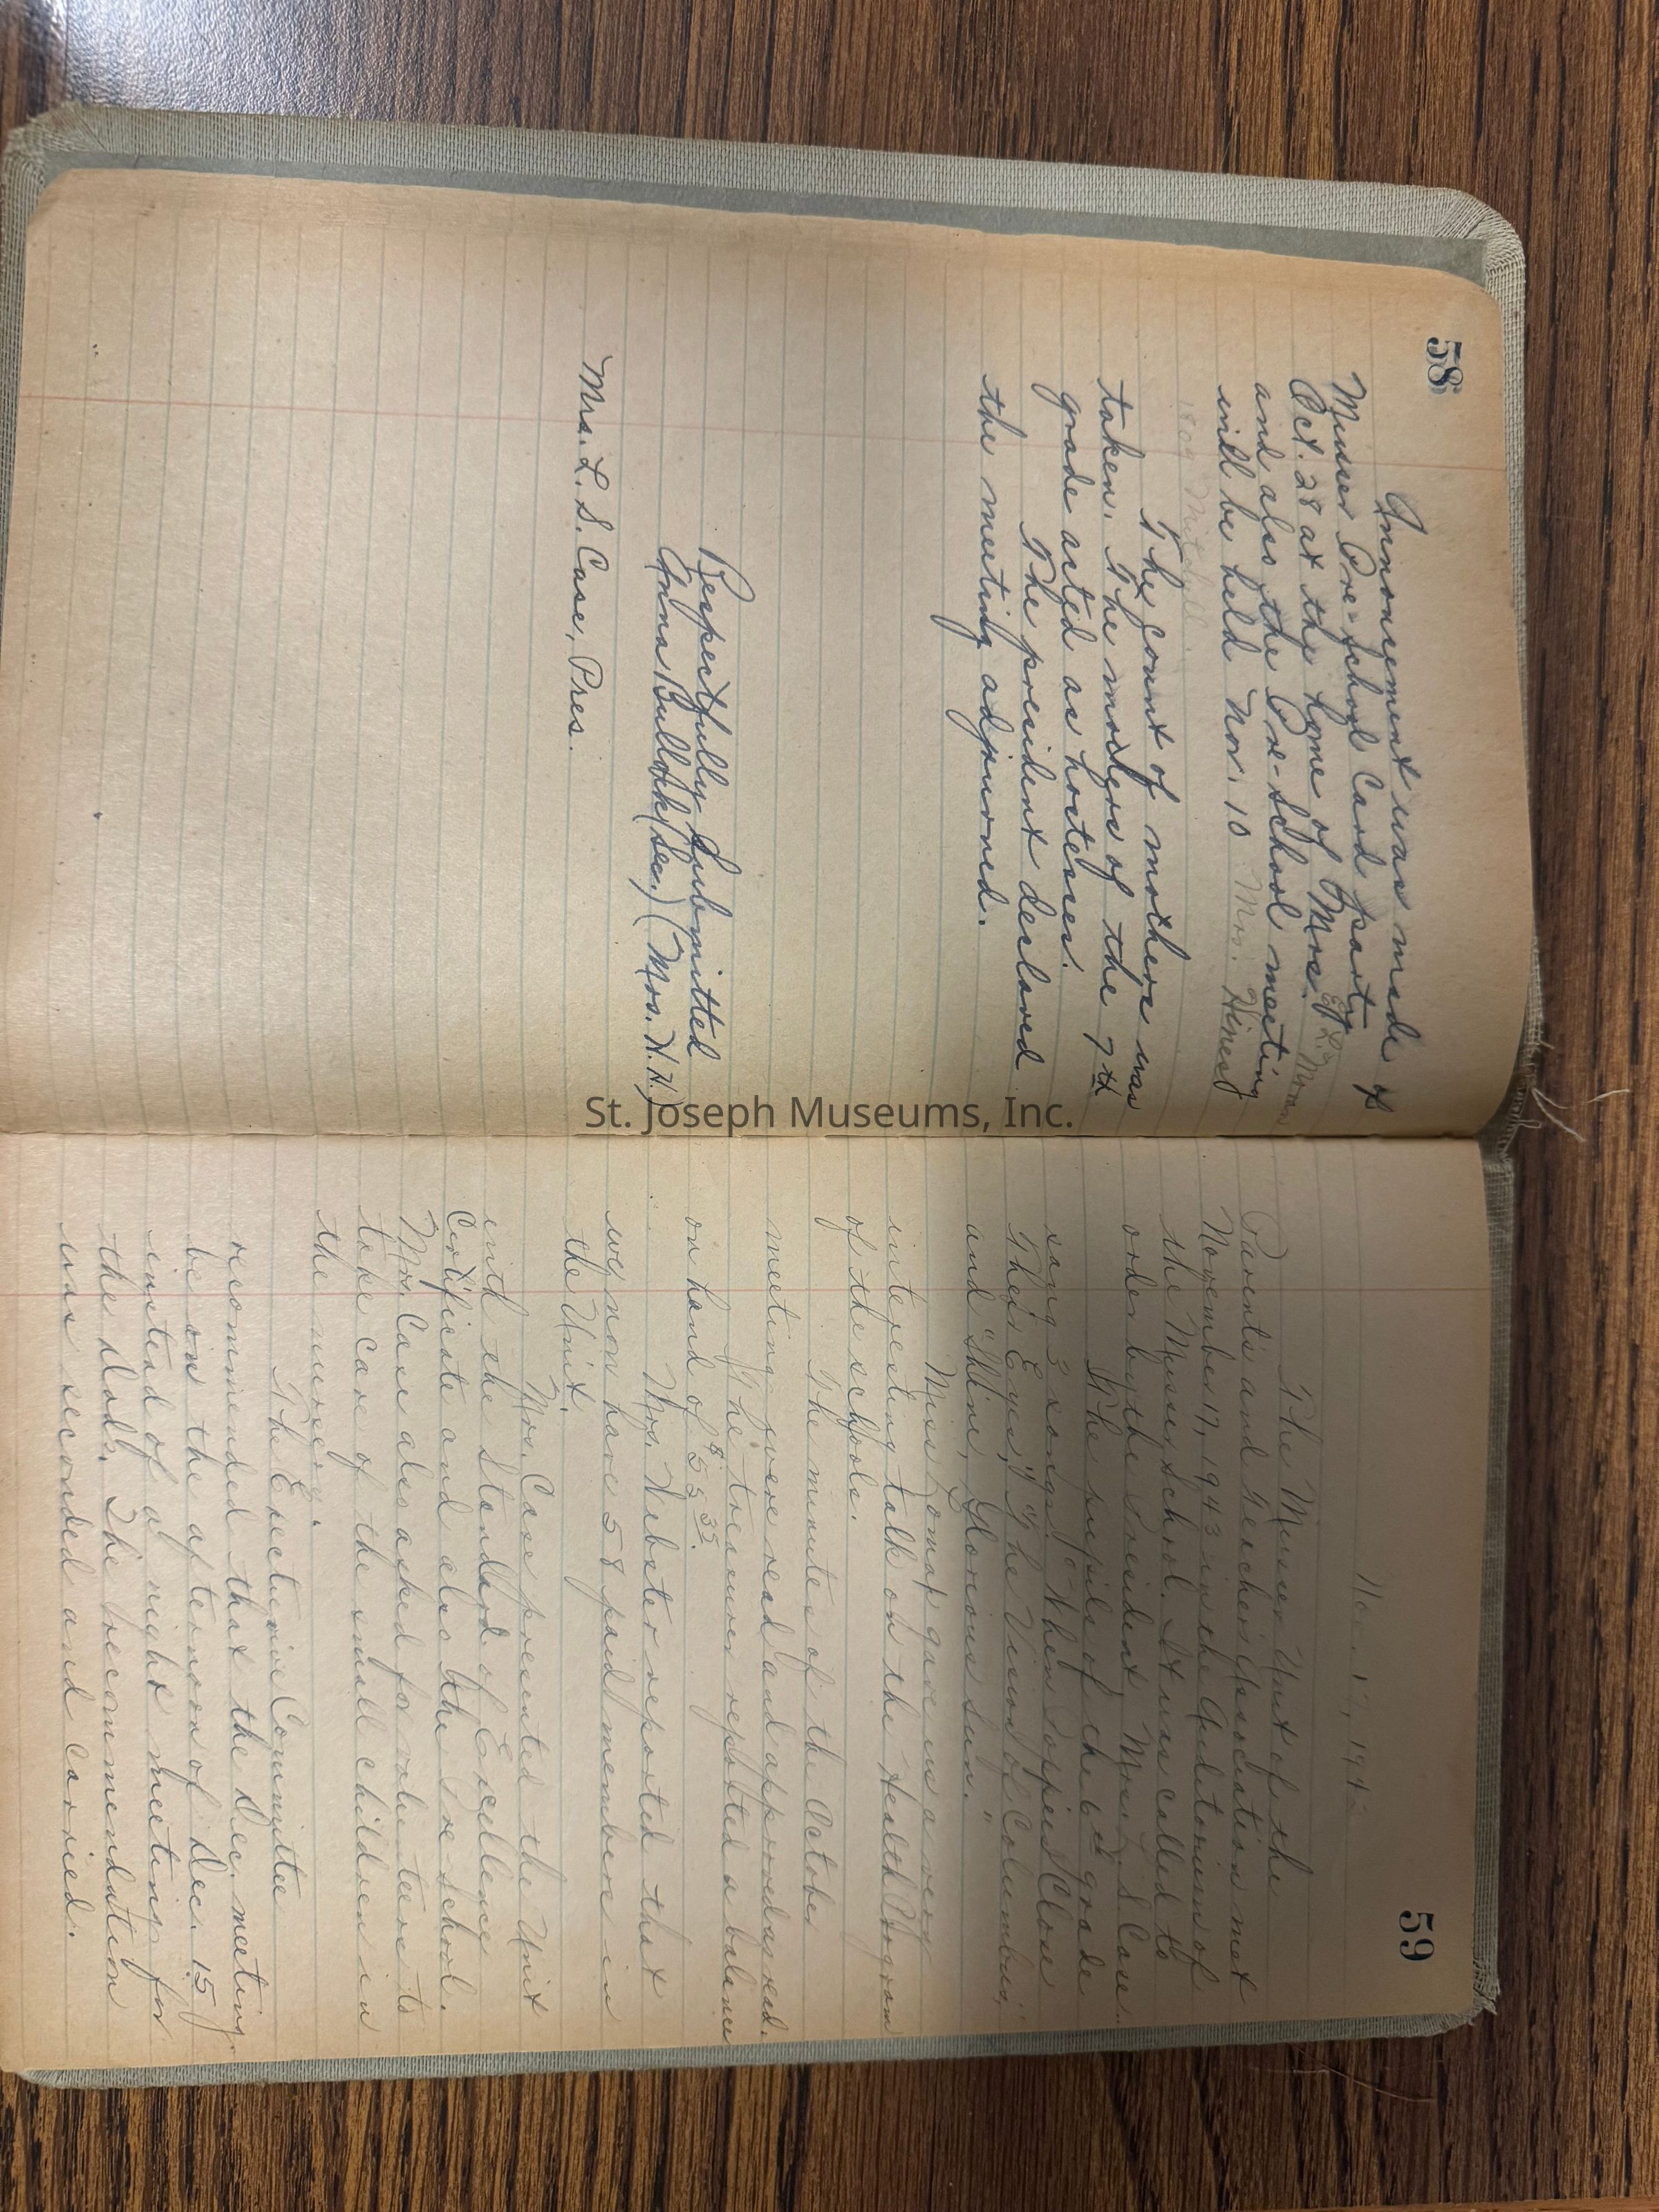 58
Announcement was made of
Musser Pre-School Card party
Oct. 28 at the home of Mrs. E. L. Moran
and also the Pre-School meeting
will be held Nov. 10 Mrs. Hines
1809 Mitchell.
The count of mothers was
taken. The mothers of the 7th
grade acted as hostesses.
The president declared
the meeting adjourned.
Respectfully Submitted
Anna Bullock (Sec.) (Mrs. H. H.)
Mrs. L. S. Case, Pres.
59
Nov. 17, 194
The Musser Unit of the
Parents and Teachers Association met
November 17, 1943 in the Auditorium of
the Musser School. It was called to
order by the President, Mrs. L. S. Case.
The pupils of the 6th grade
sang 3 songs. "When Poppies Close
Their Eyes," "The Vision of Columbus,"
and "Shine, Glorious Sun."
Miss gave us a very
interesting talk on the Health Program
of the schools.
The minutes of the October
meeting were read and approved as read.
The treasurer reported a balance
on hand of $55 35.
Mrs. Webster reported that
we now have 58 paid members in
the Unit.
Mrs. Case presented the Unit
with the Standard of Excellence
Certificate and also the Pre School.
Mrs. Case also asked for volunteers to
take care of the small children in
the nursery.
The Executive Committee
recommended that the Dec. meeting
be on the afternoon of Dec. 15
insted of a night meeting for
the dads. The recommendation
was seconded and carried.
St. Joseph Museums, Inc.